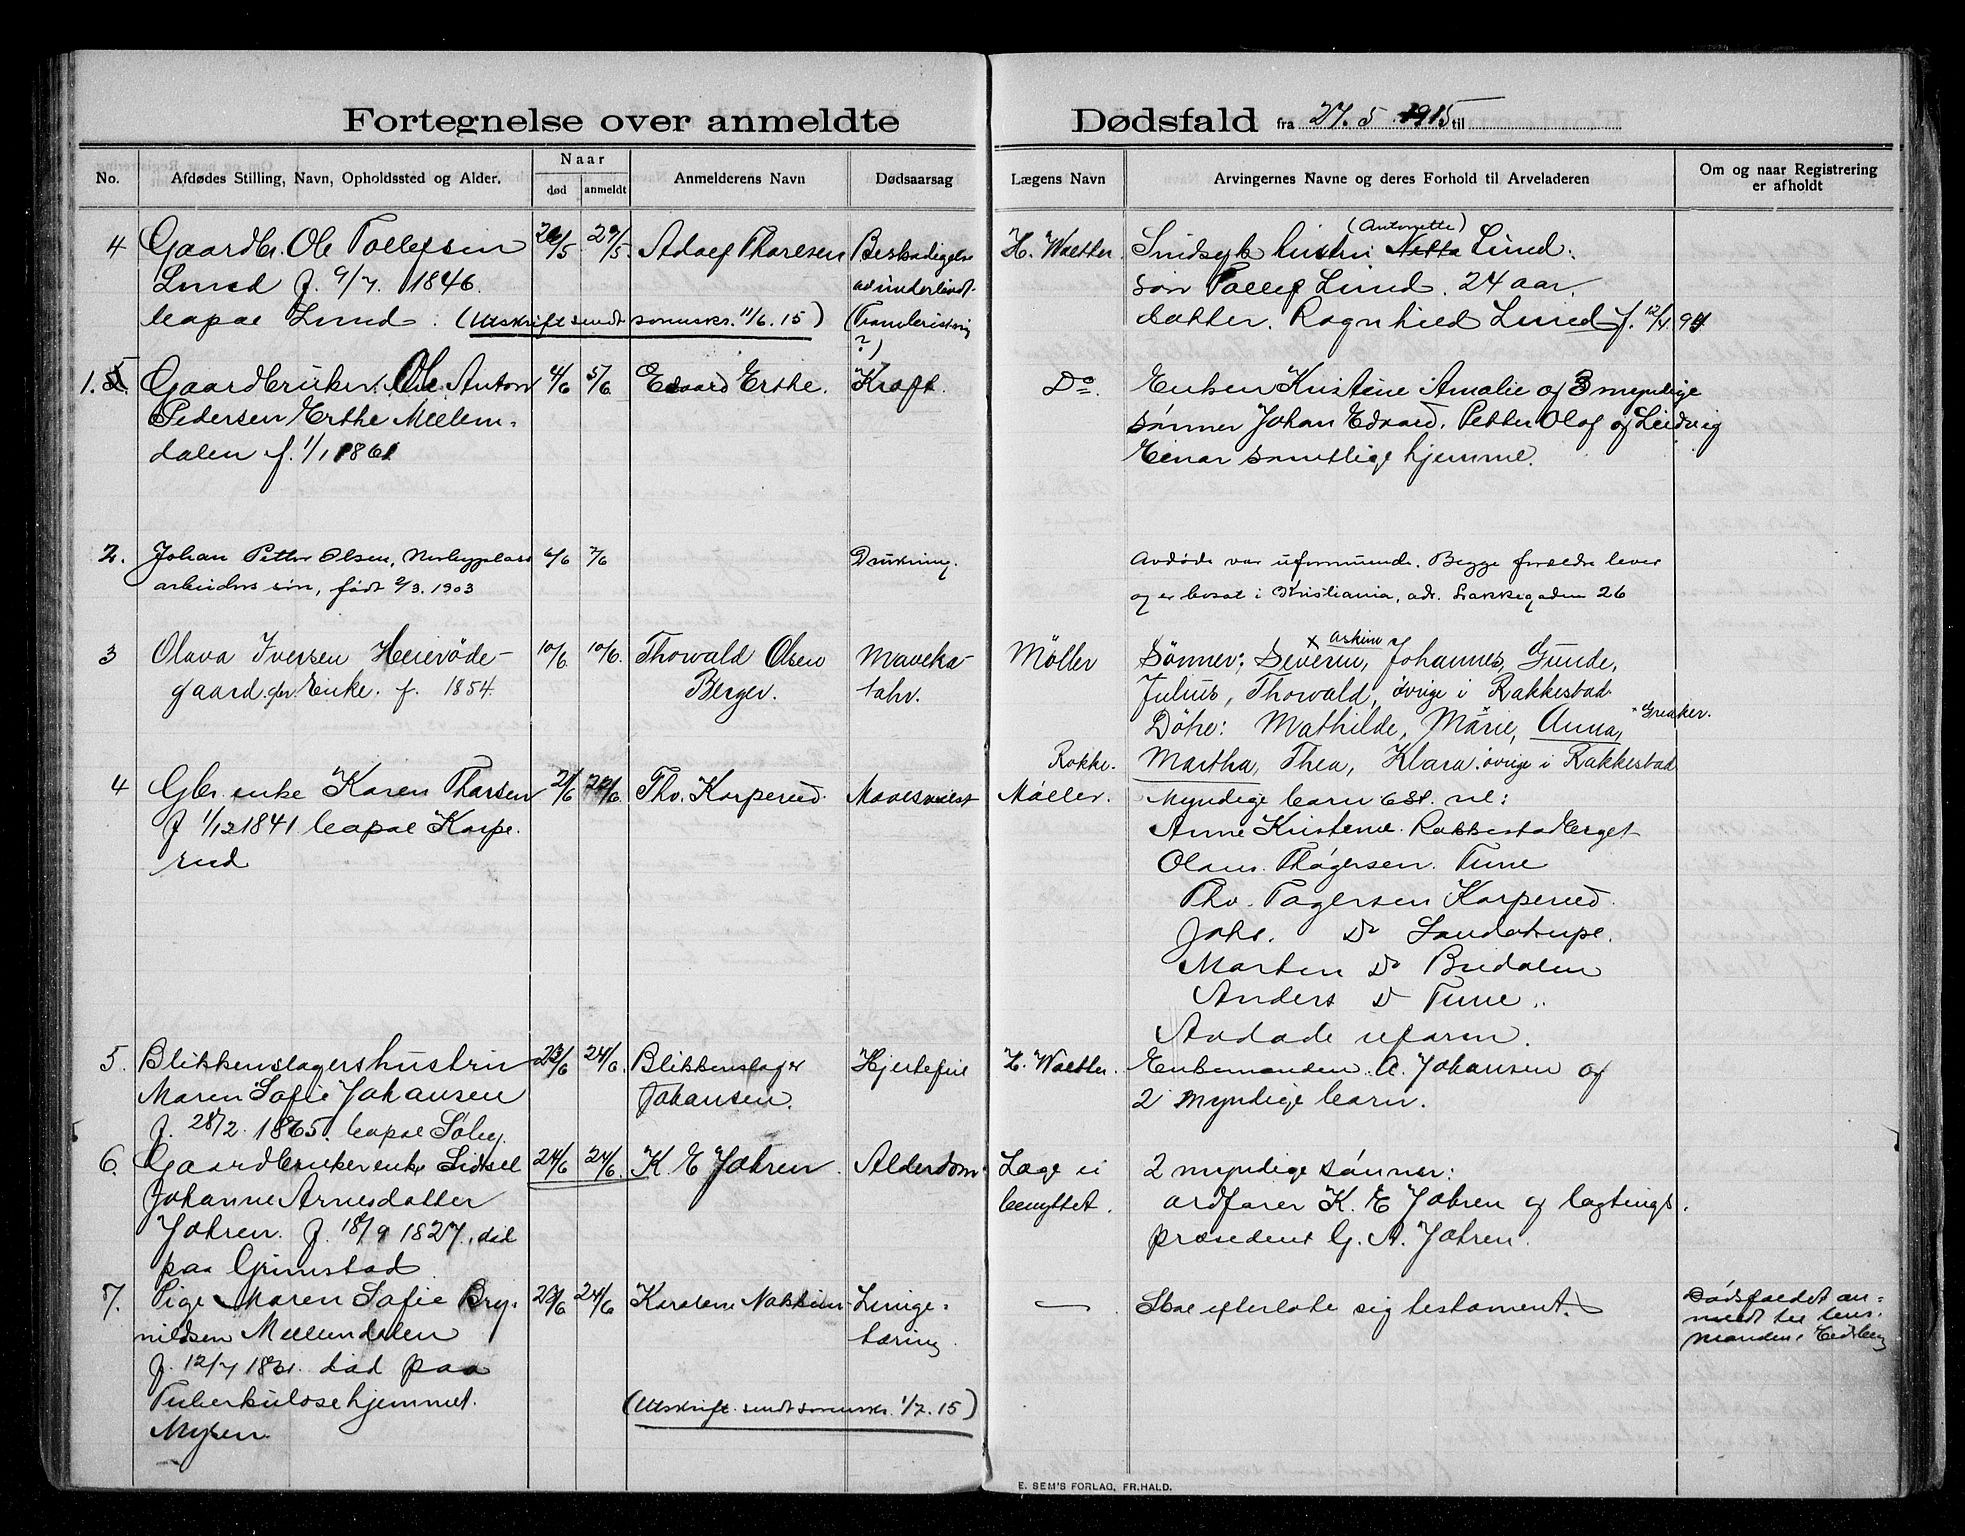 Fortegnelse over anmeldte Dødsfald fra 27. 5 1915 til
No.
Afdødes Stilling, Navn, Opholdssted og Alder.
Naar
død
anmeldt
Anmelderens Navn
Dødsaarsag
Lægens Navn
Arvingernes Navne og deres Forhold til Arveladeren
Om og naar Registrering
er afholdt
4
Gaardbr. Ole Tollefsen
Lund f. 9/7. 1846.
bopæl Lund. (Utskrift sendt sorenskr. 11/6. 15)
29/5
Adolf Thoresen
Beskadigelse
av underlivet
?)
H. Walther
(Antonette)
Sindsyk hustru Netta Lund.
søn Tollef Lund. 24 aar.
datter. Ragnhild Lund f. 12/4 94
1. 5.
Gaardbruker. Ole Anton
Pedersen Erthe Mellem-
dalen f. 1/1 1861
4/6
5/6
Edvard Erthe.
Kræft.
Do.
Enken Kristine Amalie og 3 myndige
sønner Johan Edvard, Petter Olaf og Ludvig
Einar samtlige hjemme.
2.
Johan Petter Olsen,
arbeiders søn, født 2/3. 1903
6/6
7/6
Drukning.
Avdøde var uformuende. Begge forældre lever
og er bosat i Kristiania, adr. Brakkegaden 26
3
Olava Iversen Heierøde-
gaard. gbr. Enke. f. 1854.
10/6
10/6.
Thorvald Olsen
Berger.
Maveka-
tahr.
Møller
x Askim
Sønner: Severin, Johannes, Gunde,
Julius, Thorvald, øvrige i Rakkestad.
Døtre: Mathilde, Marie, Anna, x Greaker.
Martha, Thea, Klara. øvrige i Rakkestad
4
Gbr. enke Karen Thorsen
f 1/12 1841 bopæl Korpe-
rud
21/6
22/6
Thv. Korperud.
Mavesvulst
Rokke.
Møller.
Myndige barn 6 st. nl:
Anne Kristine Rakkestadberget
Olaus Thøgersen. Tune
Thv. Tøgersen Korperud.
Johs. Do
Morten Do Budalen
Anders Do Tune.
Avdøde uform.
5.
Blikkenslagershustru
Maren Sofie Johansen
f. 28/2. 1865. bopæl Søby.
23/6
24/6.
Blikkenslager
Johansen.
Hjertefeil
H. Walther.
Enkemanden A. Johansen og
2 myndige barn.
6.
Gaardbrukerenke Sidsel
Johanne Arnesdatter
Jahren. f. 18/9 1827. død
paa Grimstad
24/6
24/6.
K. E Jahren
Alderdom.
Læge ei
benyttet.
2 myndige sønner:
ordfører K. E Jahren og lagtings-
præsident G. A. Jahren.
7.
Pige Maren Sofie Bry-
nildsen Mellemdalen
f. 12/7 1861. død paa
Tuberkulosehjemmet.
Mysen
23/6
24/6
Karoline Nakkim
Lunge-
tæring.
(Utskrift sendt sorenskr. 1/7. 15)
Skal efterlate sig testament.
Dødsfaldet an-
meldt til lens-
manden i Eidsberg
E. SEM'S FORLAG, FR.HALD.